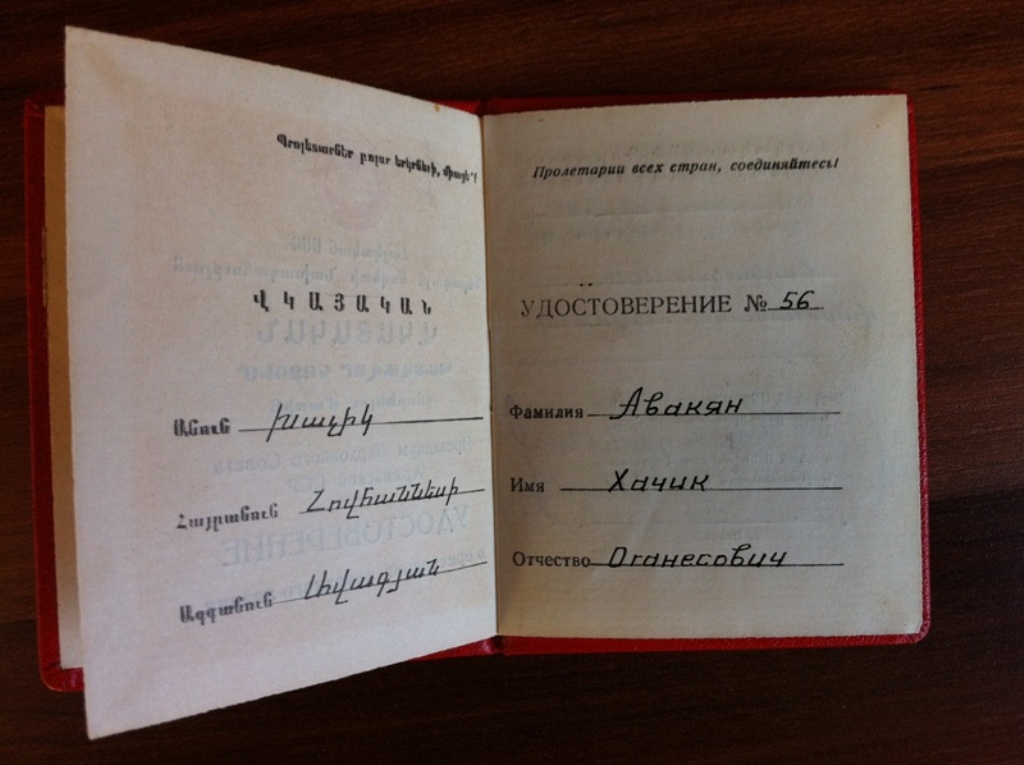 Պրոլետարներ բոլոր երկրների, միացե՛ք
ՎԿԱՅԱԿԱՆ
Անուն Խաչիկ
Հայրանուն Հովհաննեսի
Ազգանուն Ավագյան
Пролетарии всех стран, соединяйтесь!
УДОСТОВЕРЕНИЕ № 56
Фамилия Авакян
Имя Хачик
Отчество Оганесович